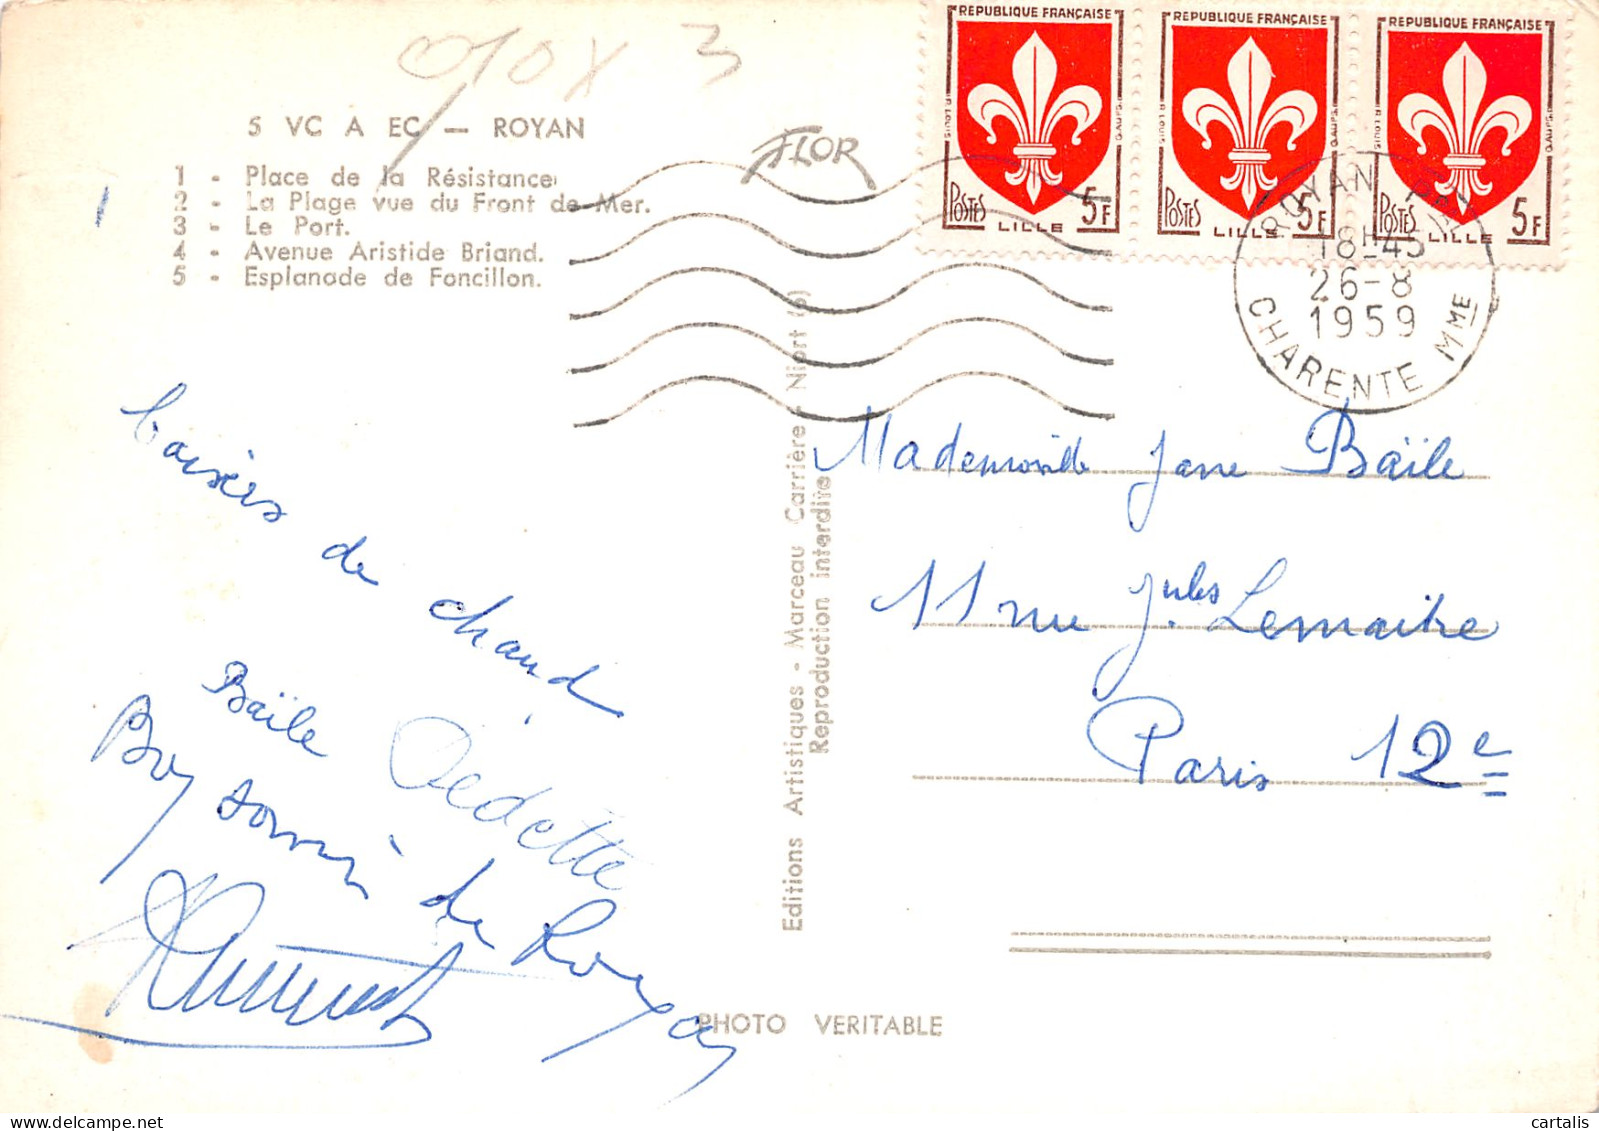 910X 3
5 VC A EC — ROYAN
1 - Place de la Résistance
2 - La Plage vue du Front de Mer.
3 - Le Port.
4 - Avenue Aristide Briand.
5 - Esplanade de Foncillon.
FLOR
REPUBLIQUE FRANÇAISE
POSTES 5F
LILLE
REPUBLIQUE FRANÇAISE
POSTES 5F
LILLE
REPUBLIQUE FRANÇAISE
POSTES 5F
LILLE
ROYAN
18H45
26-8
1959
CHARENTE MME
baisers de chaud
Baïle Dedette
Bon souvenir de Royan
Editions Artistiques - Marceau Carrière - Niort
Reproduction interdite
Mademoiselle Jane Baïle
11 rue Jules Lemaitre
Paris 12e
PHOTO VERITABLE
cartalis